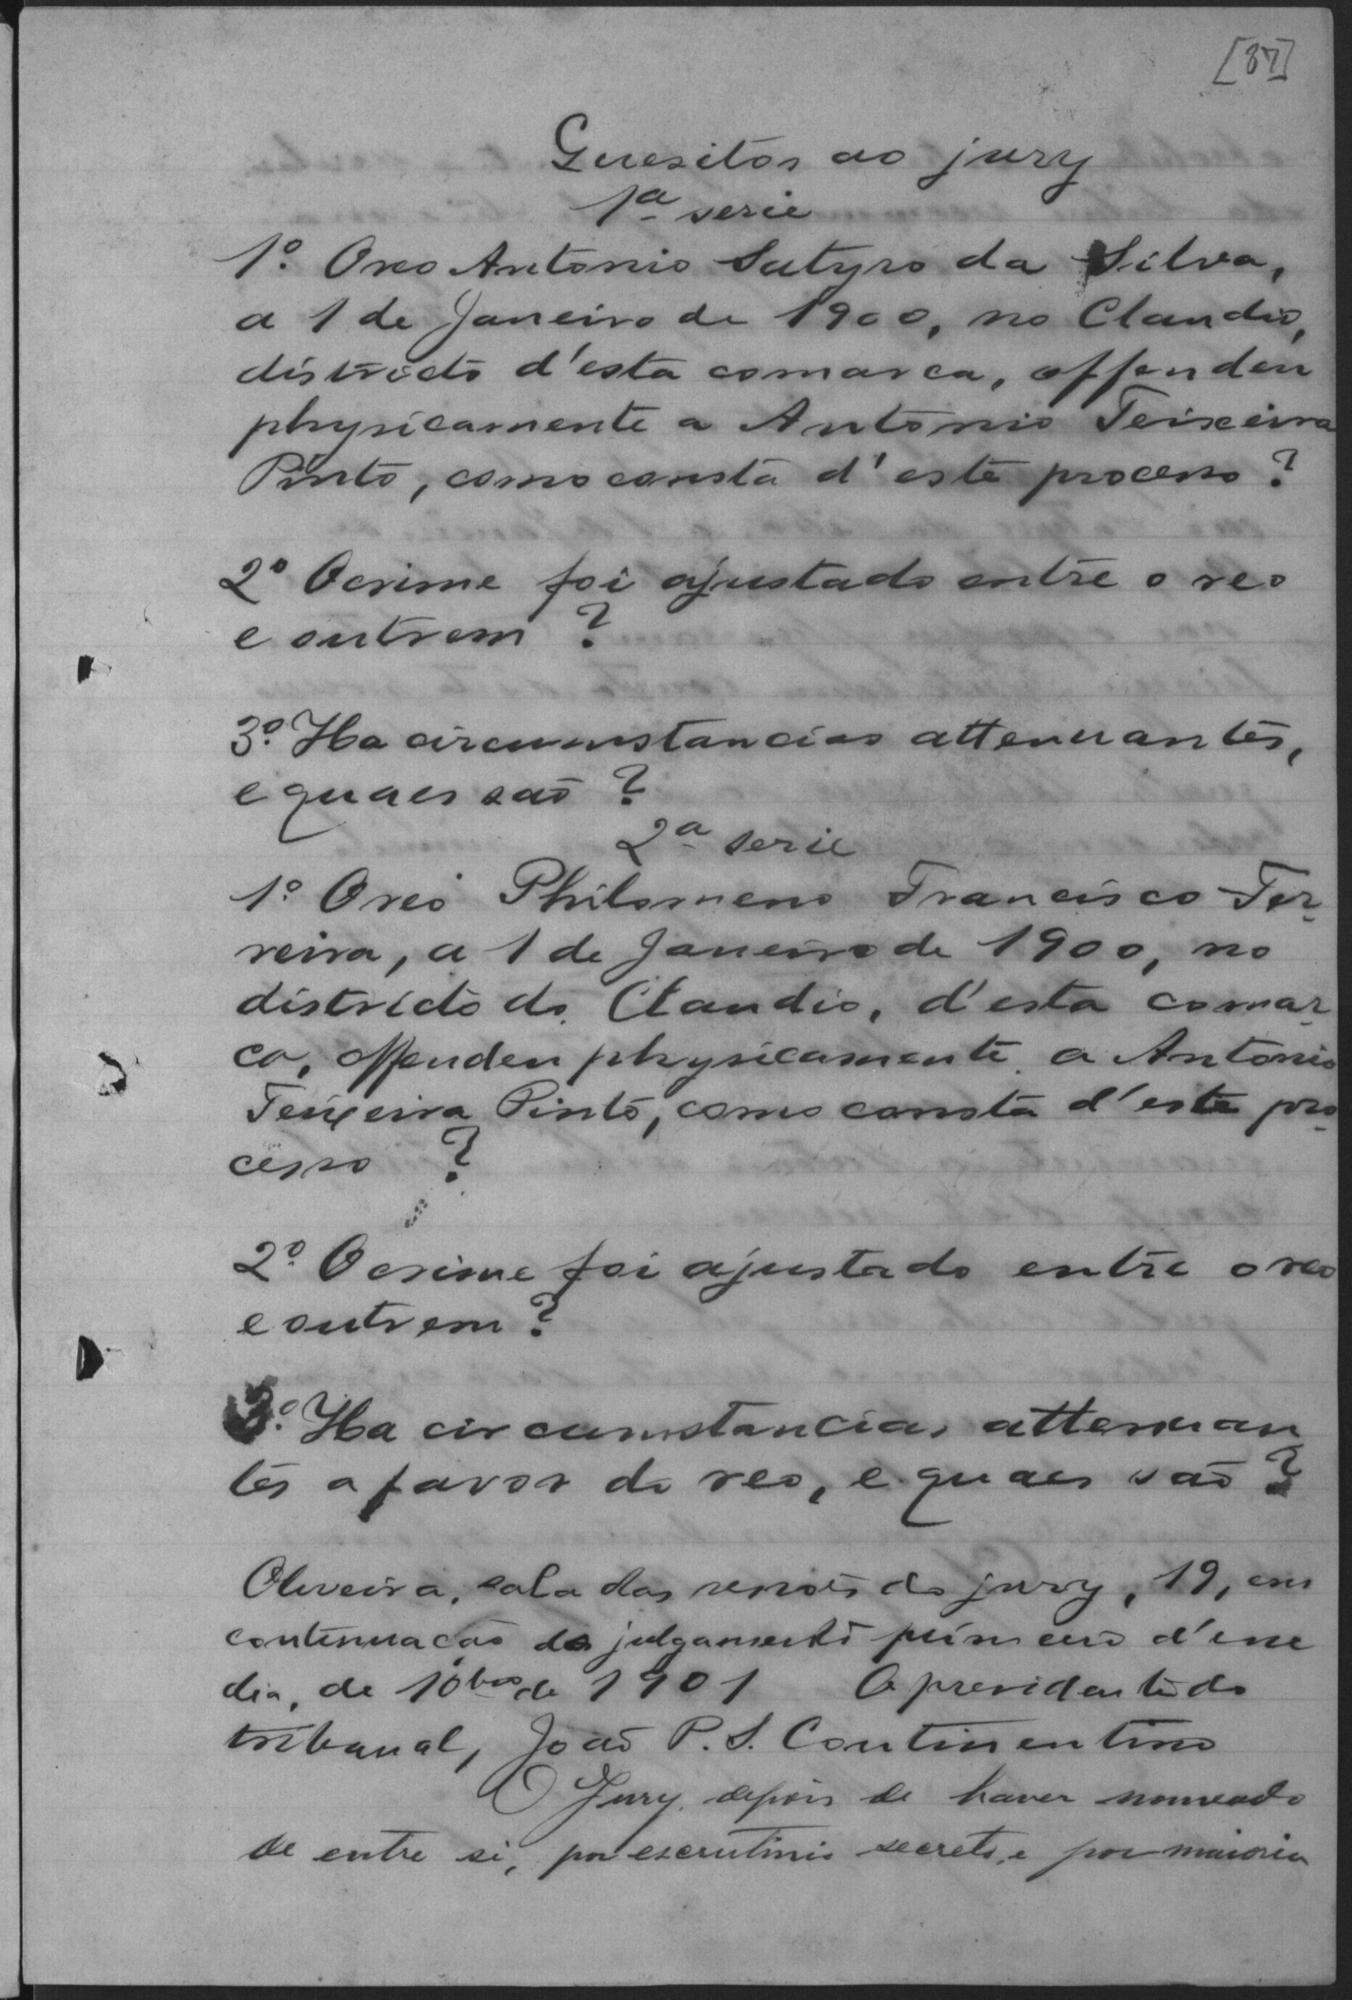 [87]
Quesitos ao jury
1ª serie
1º. O reo Antonio Satyro da Silva,
a 1 de Janeiro de 1900, no Claudio,
districto d'esta comarca, offendeu
physicamente a Antonio Teixeira
Pinto, como consta d'este processo?
2º O crime foi ajustado entre o reo
e outrem?
3º. Ha circumstancias attenuantes,
e quaes são?
2ª serie
1º. O reo Philomeno Francisco Fer-
reira, a 1 de Janeiro de 1900, no
districto do Claudio, d'esta comar-
ca, offendeu physicamente a Antonio
Teixeira Pinto, como consta d'este pro-
cesso?
2º. O crime foi ajustado entre o reo
e outrem?
3º. Ha circumstancias attenuan
tes a favor do reo, e quaes são?
Oliveira, sala das sessões do jury, 19, em
continuação do julgamento primeiro d'esse
dia, de 10bro de 1901 O presidente do
tribunal, João P. S. Continentino
O Jury, depois de haver nomeado
de entre si, por escrutinio secreto, e por maioria